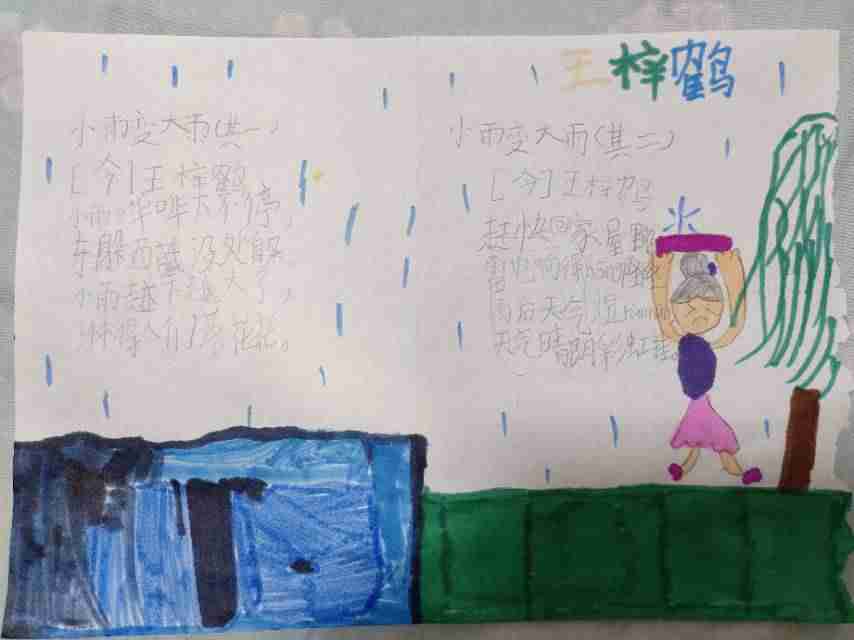 王梓鹤
小雨变大雨(其一)
[今]王梓鹤
小雨哗哗下不停,
东躲西藏没处躲
小雨越下越大了,
淋得人们落花
小雨变大雨(其二)
[今]王梓鹤
赶快回家屋
雨后天气湿
天气晴朗彩虹挂。